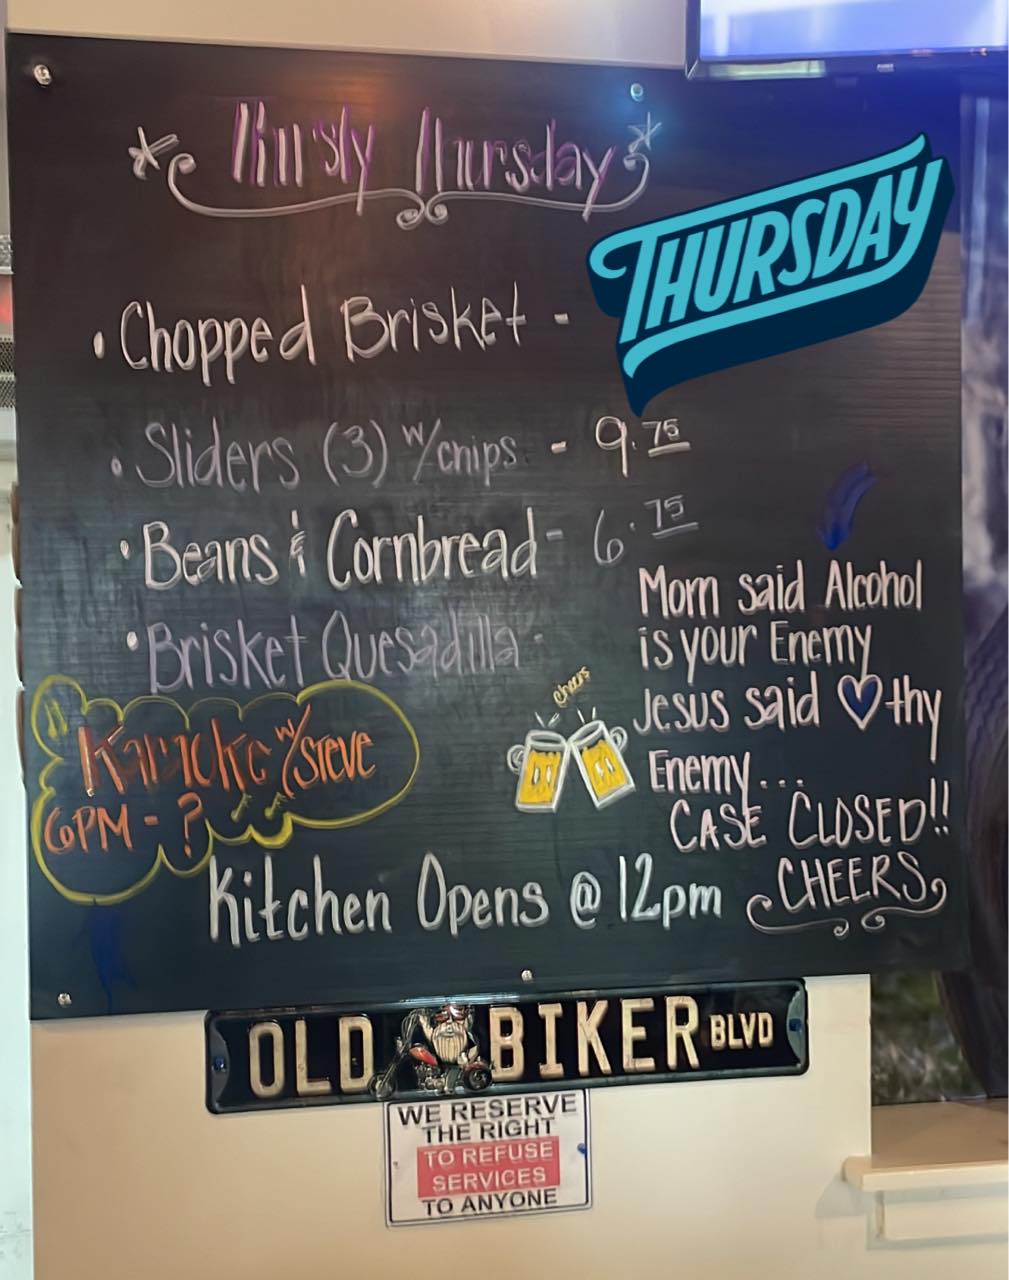 Thirsty Thursday
THURSDAY
• Chopped Brisket -
• Sliders (3) w/chips - 9.75
• Beans & Cornbread - 6.75
• Brisket Quesadilla -
Mom said Alcohol
is your Enemy
Jesus said ♡ thy
Enemy...
CASE CLOSED!!
CHEERS
cheers
Karaoke w/STEVE
6PM - ?
Kitchen Opens @ 12pm
OLD BIKER BLVD
WE RESERVE
THE RIGHT
TO REFUSE
SERVICES
TO ANYONE